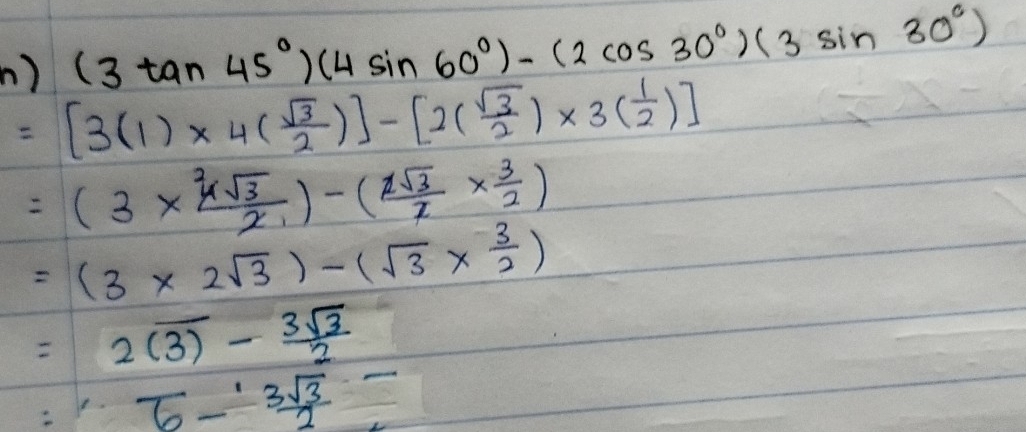 n) (3 tan 45°)(4 sin 60°) - (2 cos 30°)(3 sin 30°)
= [3(1) × 4(√3/2)] - [2(√3/2) × 3(1/2)]
= (3 × 4√3/2) - (2√3/2 × 3/2)
= (3 × 2√3) - (√3 × 3/2)
= 2(3) - 3√3/2
= 6 - 3√3/2